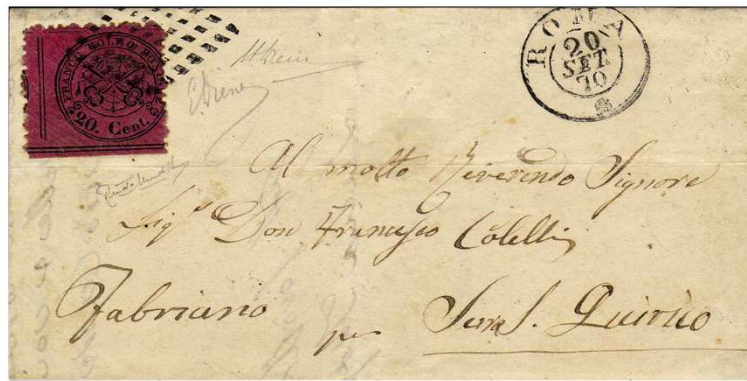 FRANCO BOLLO POSTALE
20. Cent.
ROMA
20
SET
70
E. Diena
Al molto Reverendo Signore
Sig.r Don Francesco Colelli
Fabriano per Serra S. Quirico